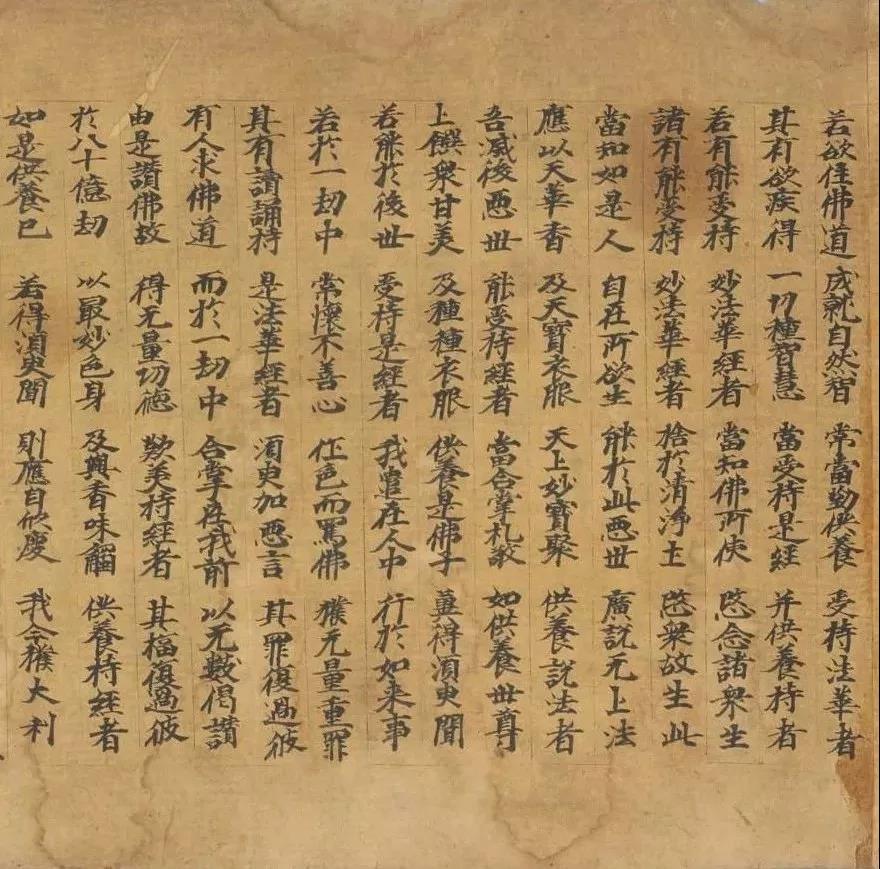 若欲住佛道 成就自然智 常當勤供養 受持法華者
其有欲疾得 一切種智慧 當受持是經 并供養持者
若有能受持 妙法華經者 當知佛所使 愍念諸衆生
諸有能受持 妙法華經者 捨於清淨土 愍衆故生此
當知如是人 自在所欲生 能於此惡世 廣說无上法
應以天華香 及天寶衣服 天上妙寶聚 供養說法者
吾滅後惡世 能受持經者 當合掌礼敬 如供養世尊
上饌衆甘美 及種種衣服 供養是佛子 兾得須臾聞
若能於後世 受持是經者 我遣在人中 行於如来事
若於一劫中 常懷不善心 作色而罵佛 獲无量重罪
其有讀誦持 是法華經者 須臾加惡言 其罪復過彼
有人求佛道 而於一劫中 合掌在我前 以无數偈讚
由是讚佛故 得无量功德 歎美持經者 其福復過彼
於八十億劫 以最妙色身 及與香味觸 供養持經者
如是供養已 若得須臾聞 則應自欣慶 我今獲大利